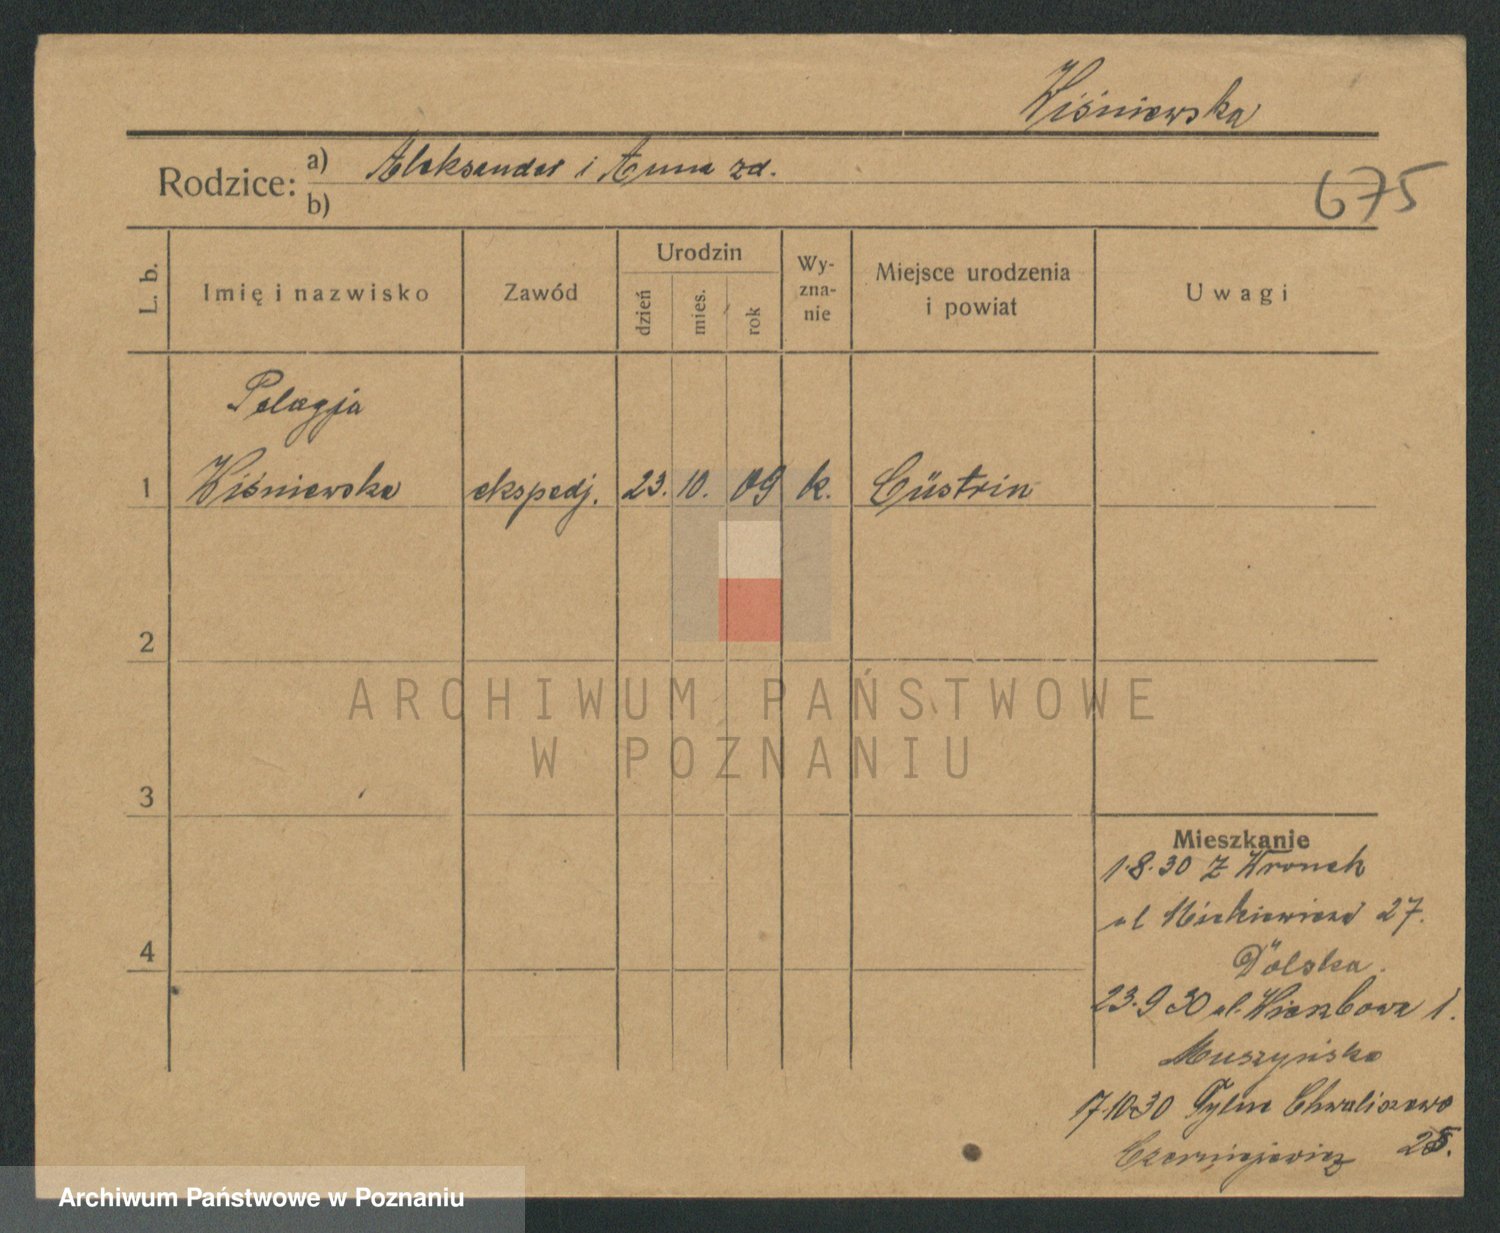 Wiśniewska
Rodzice: a) Aleksander i Anna zd.
b)
675
L. b.
Imię i nazwisko
Zawód
Urodzin
dzień
mies.
rok
Wy-
zna-
nie
Miejsce urodzenia
i powiat
Uwagi
Pelagja
1 Wiśniewska ekspedj. 23. 10. 09 k. Cüstrin
2
3
4
ARCHIWUM PAŃSTWOWE
W POZNANIU
Mieszkanie
1.8.30 z Wronek
ul Mickiewicza 27.
Dolska.
23.9 30 ul. Wierzbowa 1.
Muszyńska
7.10.30 Tylne Chwaliszewo
Czerniejewicz 25.
Archiwum Państwowe w Poznaniu